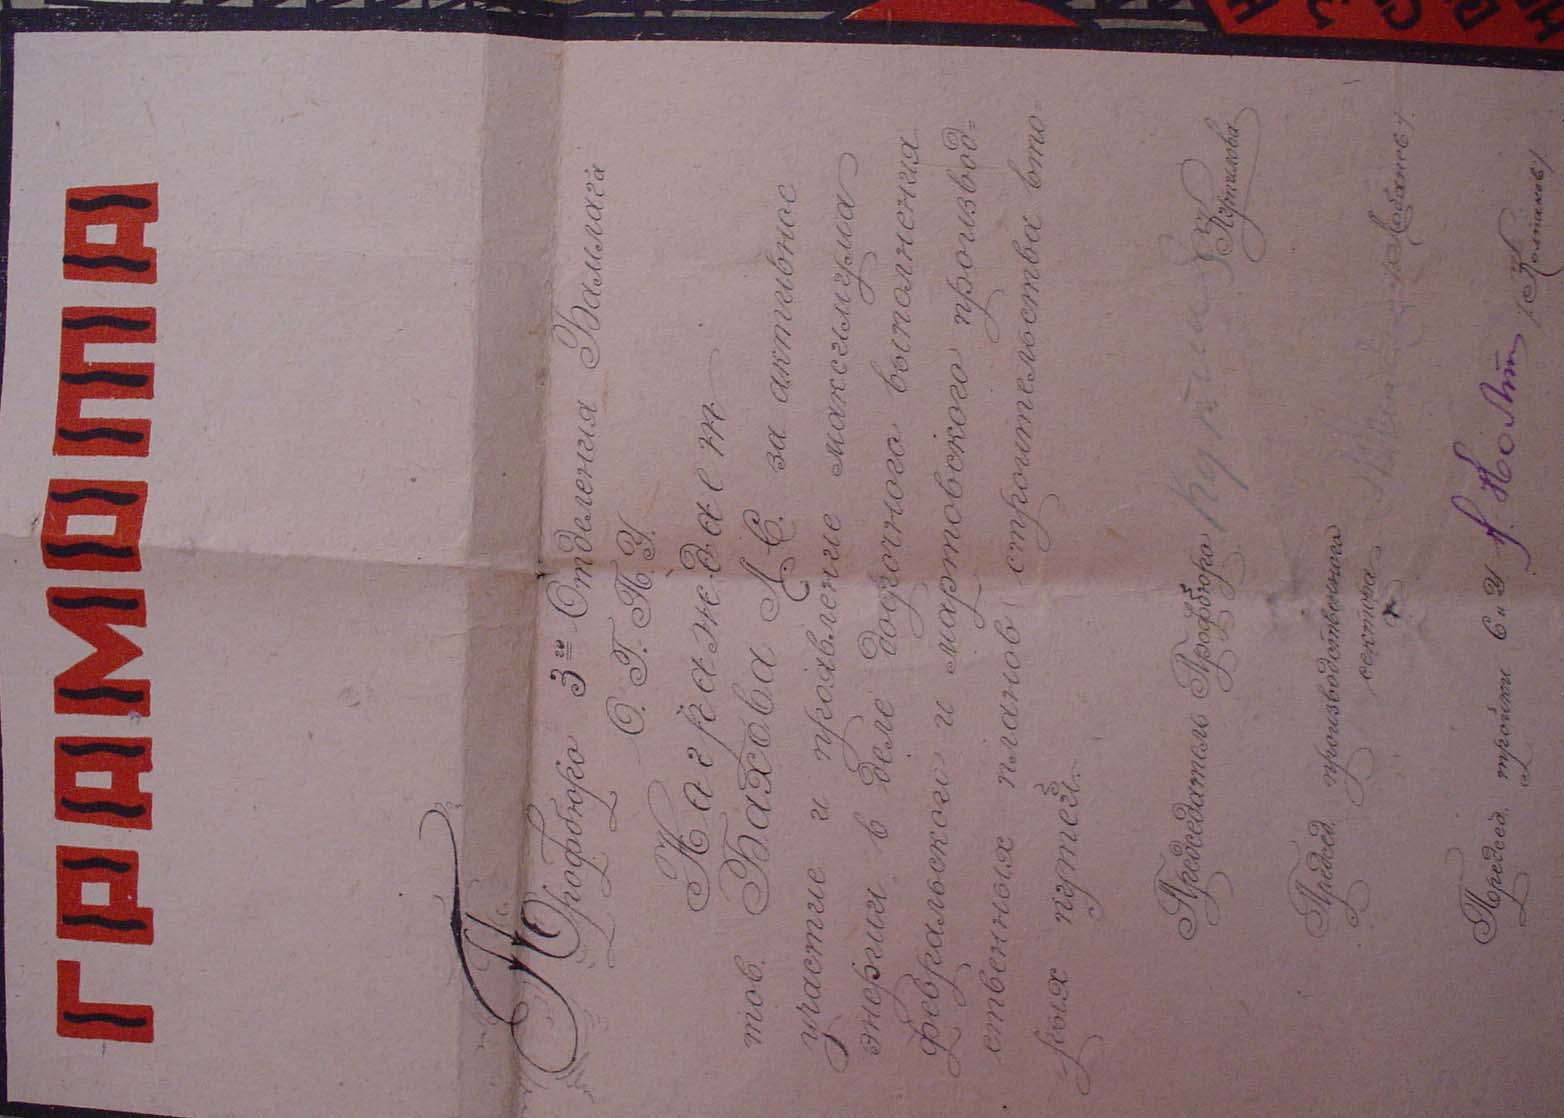 ГРАМОТА
Профбюро 3го Отделения Бамлага
О. Г. П. У.
Награждает
тов. Бахова Л С. за активное
участие и проявление максимума
энергии в деле досрочного выполнения
февральского и мартовского производ=
ственных планов строительства вто=
рых путей.
Председатель Профбюро
Председ. производственного
сектора /Лобанев/.
Председ. тройки С и У /Колтаков/